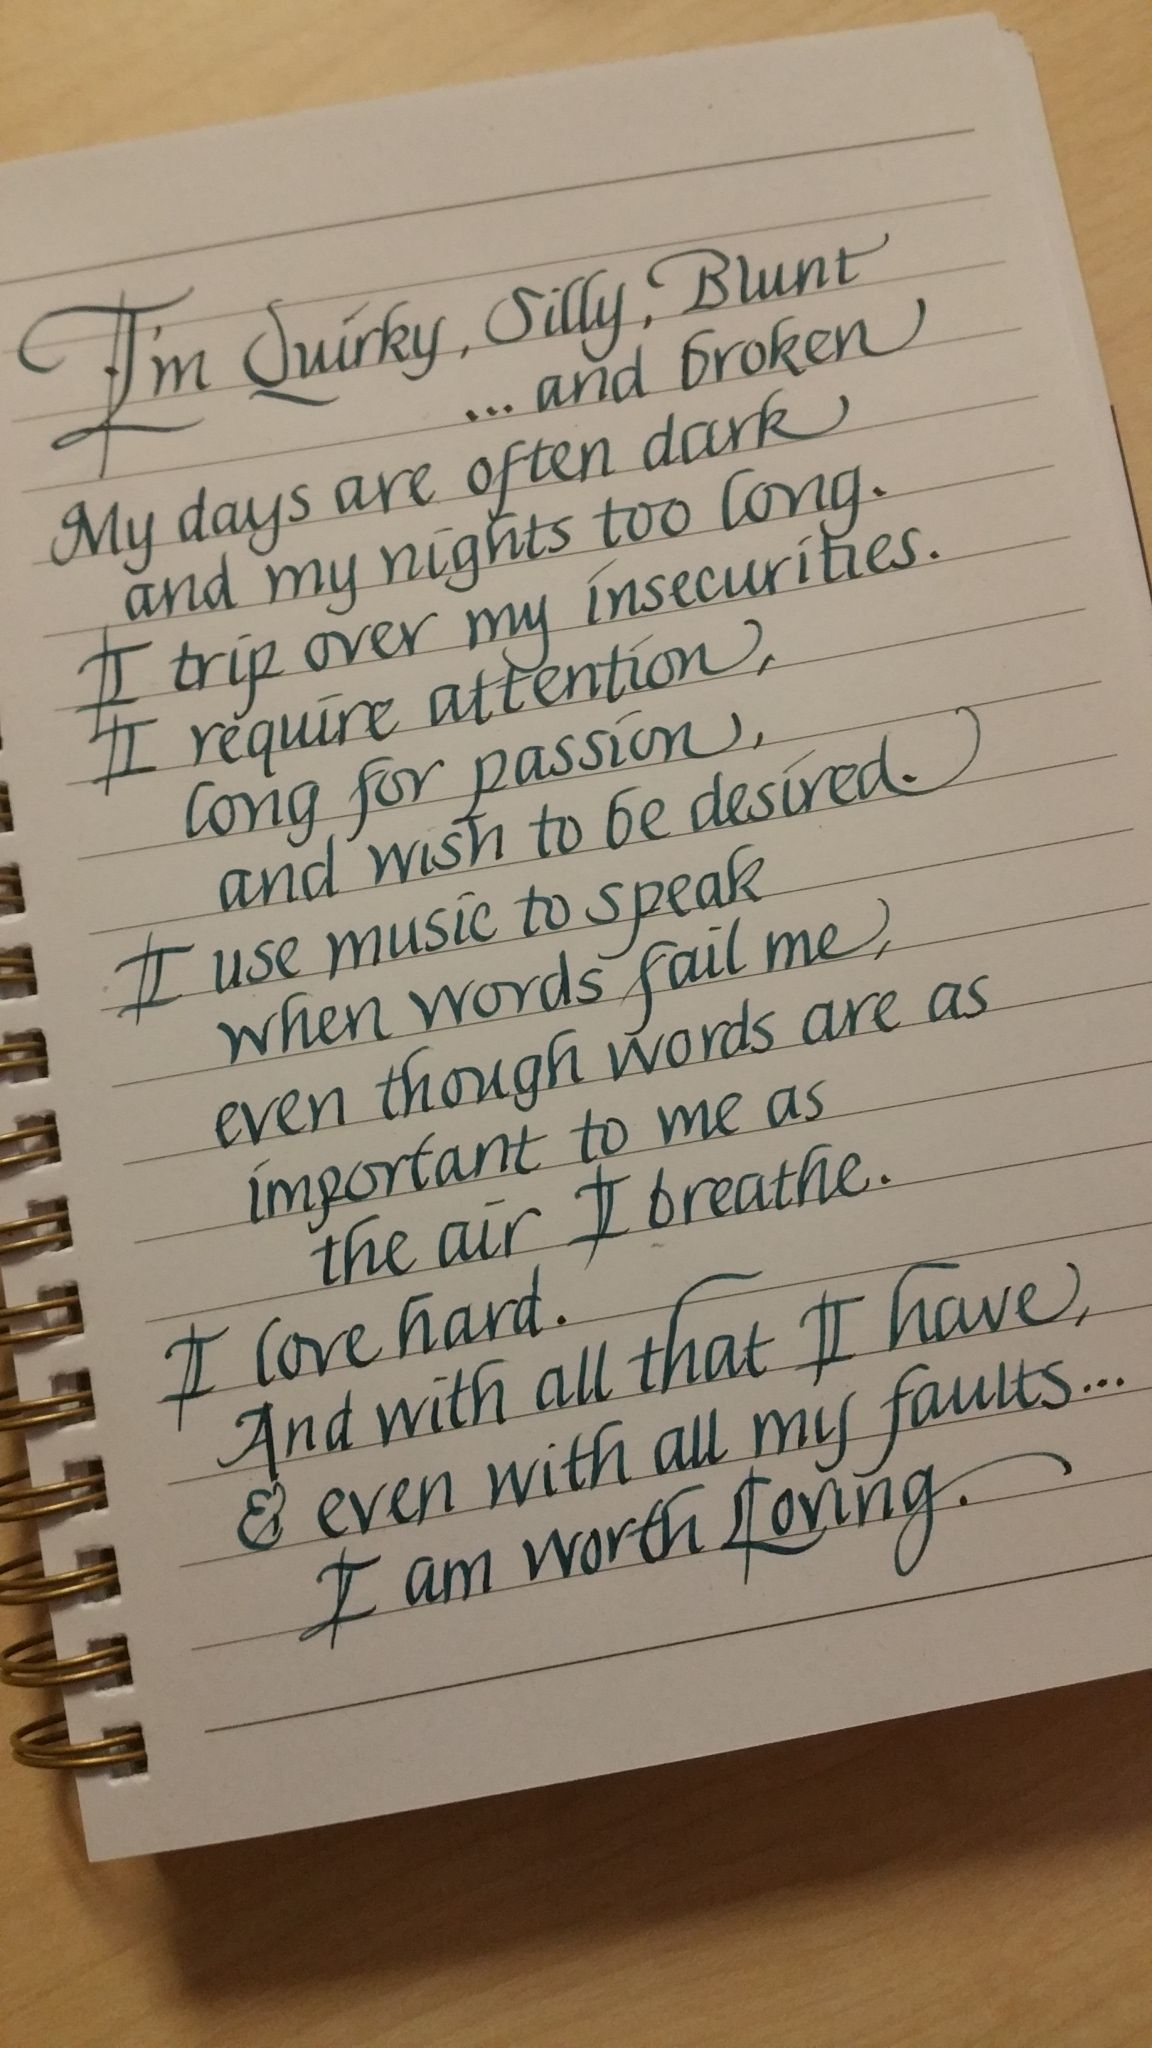 I'm Quirky, Silly, Blunt
... and broken
My days are often dark
and my nights too long.
I trip over my insecurities.
I require attention,
long for passion,
and wish to be desired.
I use music to speak
when words fail me,
even though words are as
important to me as
the air I breathe.
I love hard.
And with all that I have,
& even with all my faults...
I am worth Loving.